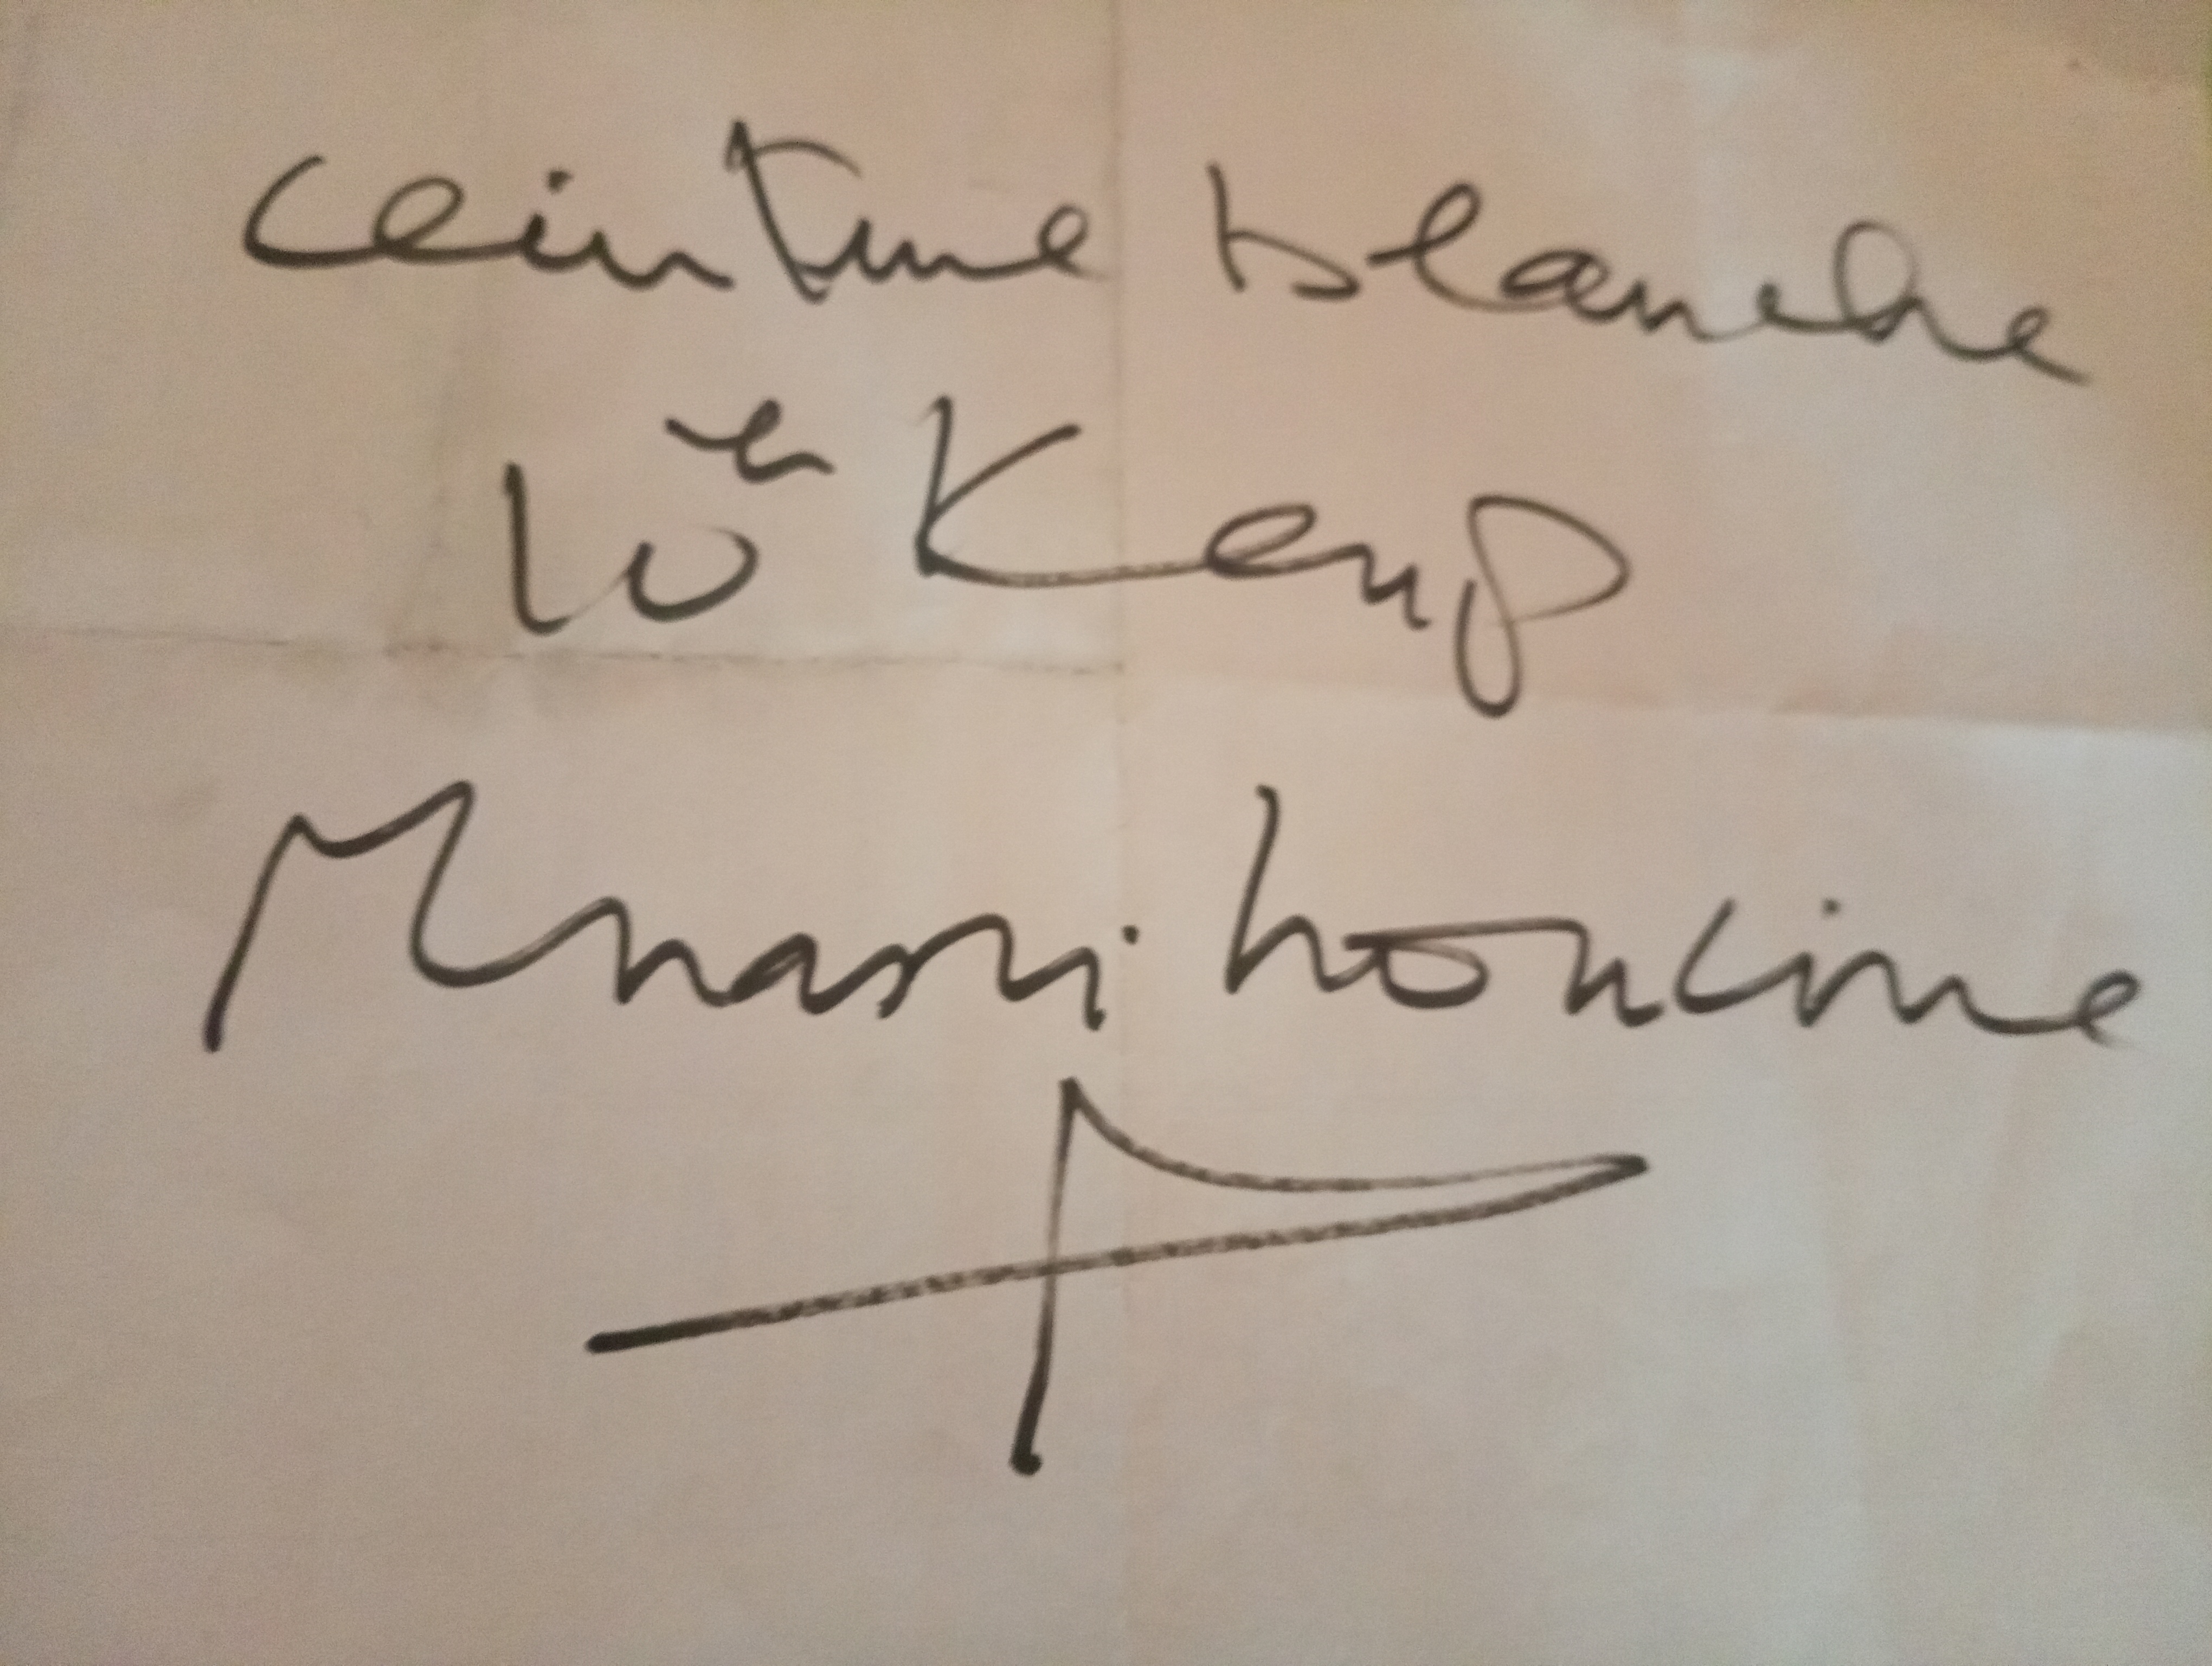 ceinture blanche
10e Keup
Mnasri houcine